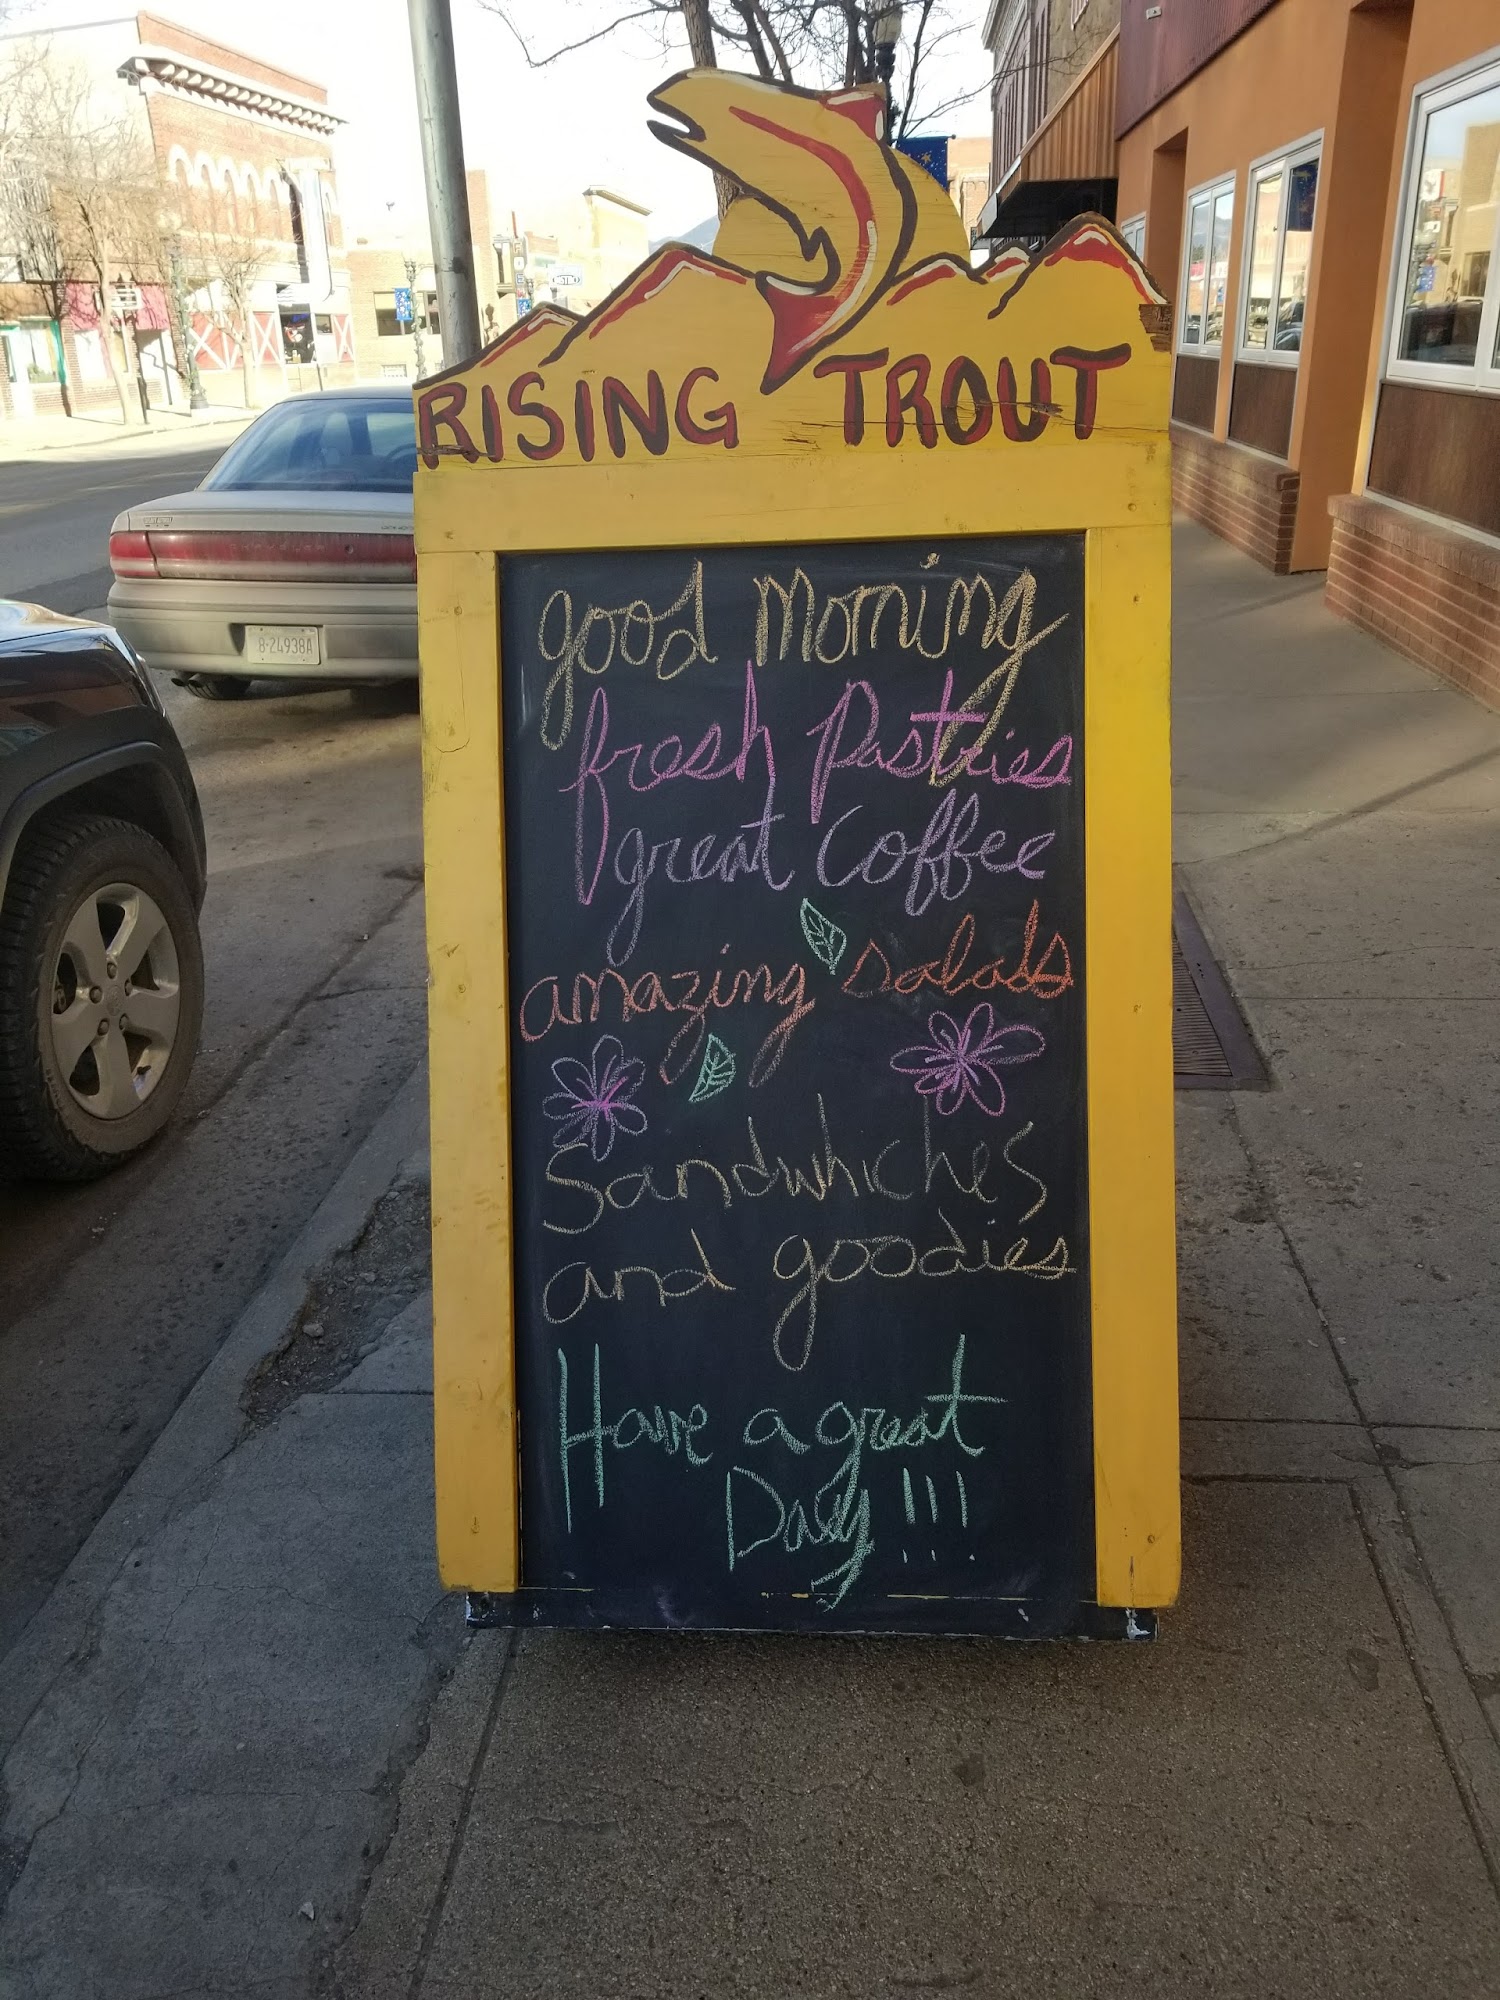 RISING TROUT
good morning
fresh pastries
great Coffee
amazing salads
Sandwhiches
and goodies
Have a great
Day!!!
8-24938A